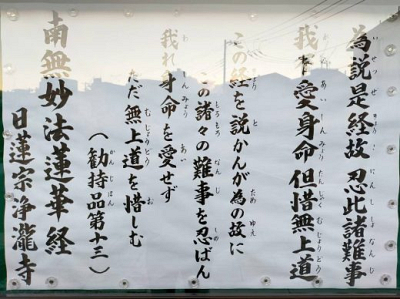 為説是経故 忍此諸難事
我不愛身命 但惜無上道
この経を説かんが為の故に
この諸々の難事を忍ばん
我れ身命を愛せず
ただ無上道を惜しむ
（勧持品第十三）
南無妙法蓮華経
日蓮宗浄瀧寺